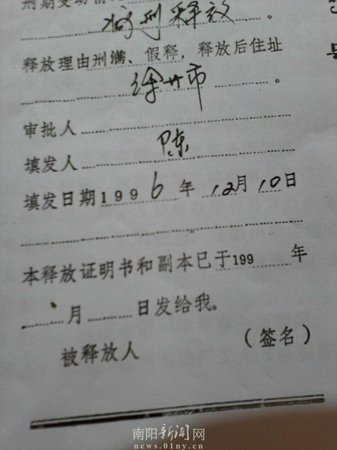 刑期变动情
减刑释放。
释放理由刑满、假释，释放后住址
徐州市。
审批人
填发人 陈
填发日期1996年12月10日
本释放证明书和副本已于199 年
月 日发给我。
被释放人 (签名)
南阳新闻网
www.01ny.cn